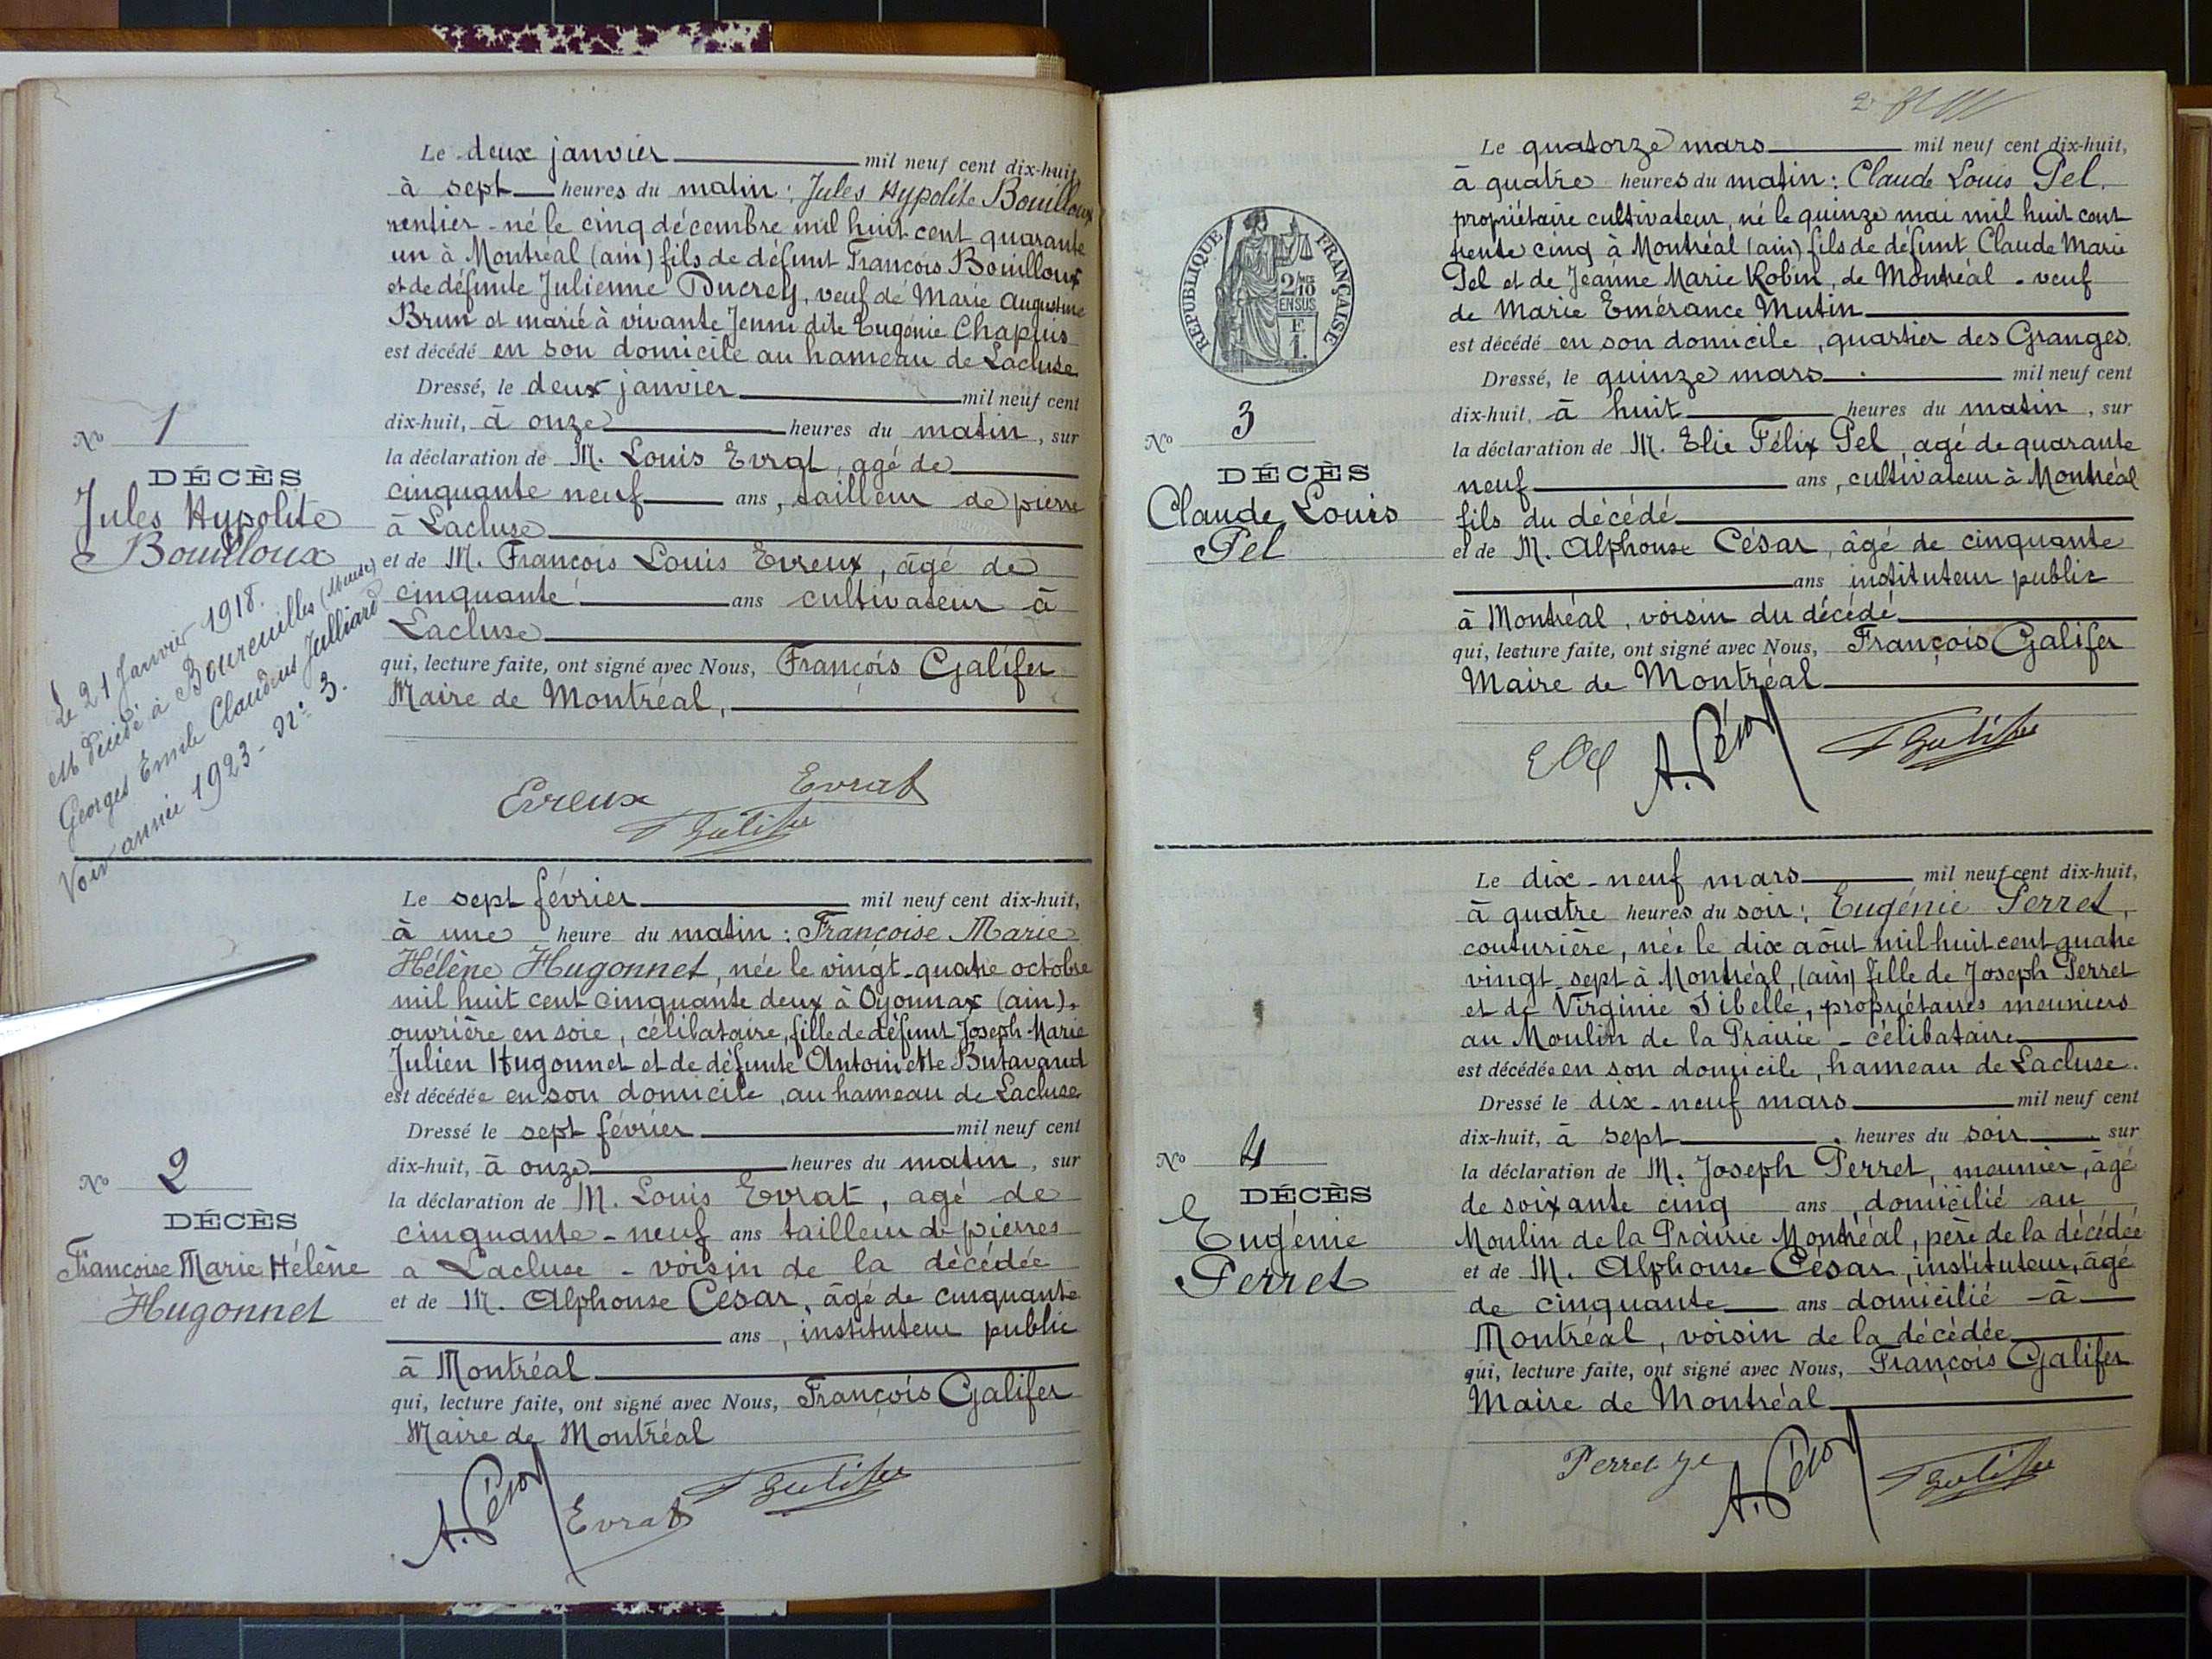 Le deux janvier mil neuf cent dix-huit,
à sept heures du matin : Jules Hypolite Bouilloux
rentier - né le cinq décembre mil huit cent quarante
un à Montréal (ain) fils de défunt François Bouilloux
et de défunte Julienne Ducrey, veuf de Marie Augustine
Brun et marié à vivante Jenni dite Eugénie Chapuis
est décédé en son domicile au hameau de Lacluse
Dressé, le deux janvier mil neuf cent
dix-huit, à onze heures du matin, sur
la déclaration de M. Louis Evrat, agé de
cinquante neuf ans, tailleur de pierre
à Lacluse
et de M. François Louis Evreux, âgé de
cinquante ans cultivateur à
Lacluse
qui, lecture faite, ont signé avec Nous, François Galifer
Maire de Montréal,
Evreux Evrat
No 1
DÉCÈS
Jules Hypolite
Bouilloux
Le 21 Janvier 1918.
est décédé à Boureuilles (Meuse)
Georges Emile Claudius Julliard
Voir année 1923 - n° 3.
Le sept février mil neuf cent dix-huit,
à une heure du matin : Françoise Marie
Hélène Hugonnet, née le vingt-quatre octobre
mil huit cent cinquante deux à Oyonnax (ain).
ouvrière en soie, célibataire, fille de défunt Joseph Marie
Julien Hugonnet et de défunte Antoinette Butavand
est décédée en son domicile, au hameau de Lacluse
Dressé le sept février mil neuf cent
dix-huit, à onze heures du matin, sur
la déclaration de M. Louis Evrat, agé de
cinquante-neuf ans tailleur de pierres
a Lacluse - voisin de la décédée
et de M. Alphonse César, âgé de cinquante
ans, instituteur public
à Montréal
qui, lecture faite, ont signé avec Nous, François Galifer
Maire de Montréal
A. César Evrat
No 2
DÉCÈS
Françoise Marie Hélène
Hugonnet
Le quatorze mars mil neuf cent dix-huit,
à quatre heures du matin : Claude Louis Pel.
propriétaire cultivateur, né le quinze mai mil huit cent
trente cinq à Montréal (ain) fils de défunt Claude Marie
Pel et de Jeanne Marie Robin, de Montréal - veuf
de Marie Emérance Mutin
est décédé en son domicile, quartier des Granges.
Dressé, le quinze mars mil neuf cent
dix-huit, à huit heures du matin, sur
la déclaration de M. Elie Félix Pel, agé de quarante
neuf ans, cultivateur à Montréal
fils du décédé
et de M. Alphonse César, âgé de cinquante
ans instituteur public
à Montréal, voisin du décédé
qui, lecture faite, ont signé avec Nous, François Galifer
Maire de Montréal
A. César
RÉPUBLIQUE FRANÇAISE
2/10
EN SUS
No 3
DÉCÈS
Claude Louis
Pel
Le dix-neuf mars mil neuf cent dix-huit,
à quatre heures du soir : Eugénie Perret,
couturière, née le dix août mil huit cent quatre
vingt-sept à Montréal, (ain) fille de Joseph Perret
et de Virginie Sibelle, propriétaires meuniers
au Moulin de la Prairie - célibataire
est décédée en son domicile, hameau de Lacluse.
Dressé le dix-neuf mars mil neuf cent
dix-huit, à sept heures du soir, sur
la déclaration de M. Joseph Perret, meunier, âgé
de soixante cinq ans, domicilié au
Moulin de la Prairie Montréal, père de la décédée
et de M. Alphonse César, instituteur, âgé
de cinquante ans domicilié à
Montréal, voisin de la décédée
qui, lecture faite, ont signé avec Nous, François Galifer
Maire de Montréal
Perret A. César
No 4
DÉCÈS
Eugénie
Perret